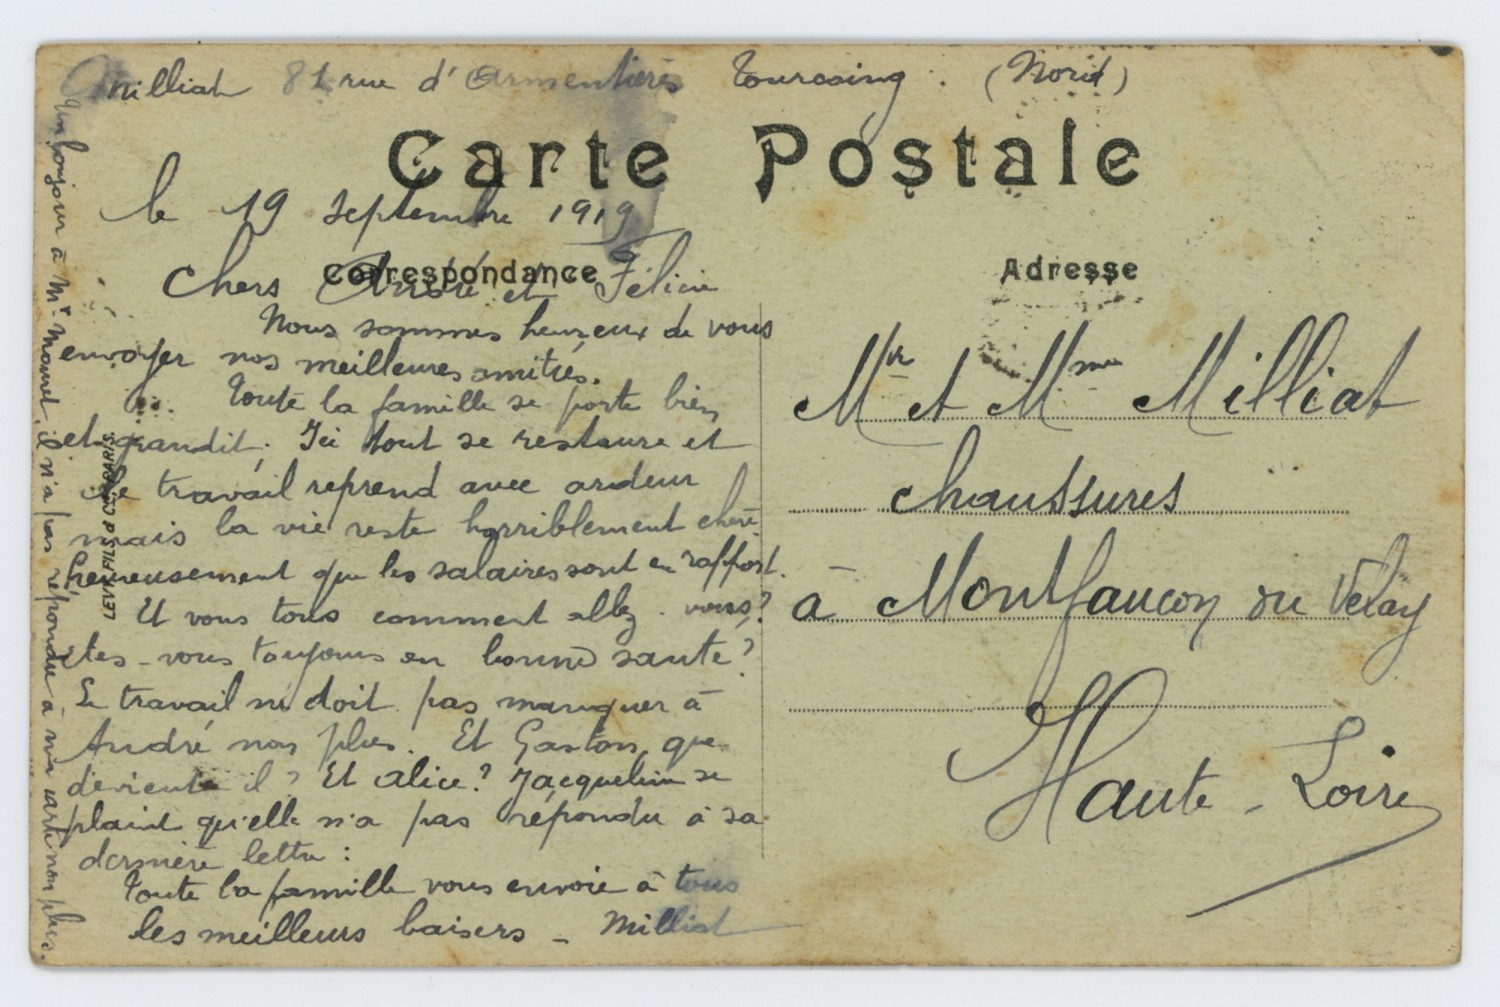 Milliat 81 rue d'Armentières Tourcoing. (Nord)
Carte Postale
le 19 septembre 1919
Correspondance
Chers André et Félicie
Nous sommes heureux de vous
envoyer nos meilleures amitiés.
Toute la famille se porte bien
et grandit. Ici tout se restaure et
le travail reprend avec ardeur
mais la vie reste horriblement chère
heureusement que les salaires sont en rapport.
Et vous tous comment allez-vous?
êtes-vous toujours en bonne santé?
Le travail ne doit pas manquer à
André non plus. Et Gaston, que
devient il? Et Alice? Jacqueline se
plaint qu'elle n'a pas répondu à sa
dernière lettre:
Toute la famille vous envoie à tous
les meilleurs baisers - Milliat
Un bonjour à Mr. il n'a pas répondu à ma carte non plus.
LEVY FILS & Cie PARIS
Adresse
Mr et Mme Milliat
chaussures
à Montfaucon du Velay
Haute-Loire